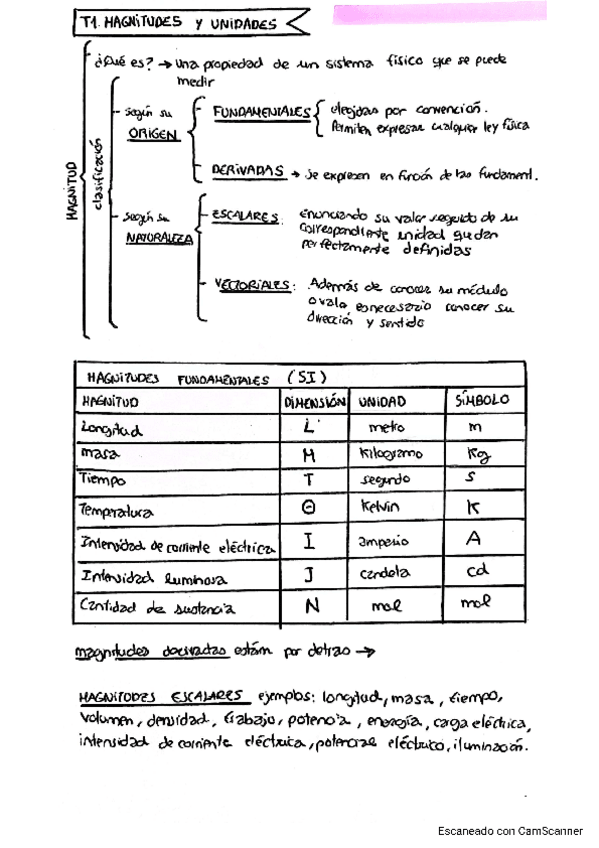 T1. MAGNITUDES Y UNIDADES
MAGNITUD
¿Qué es? → una propiedad de un sistema físico que se puede
medir
clasificación
- según su
ORIGEN
- FUNDAMENTALES
elegidas por convención.
Permiten expresar cualquier ley física
- DERIVADAS → se expresen en función de las fundament.
- según su
NATURALEZA
- ESCALARES:
enunciando su valor seguido de su
correspondiente unidad quedan
perfectamente definidas
- VECTORIALES:
Además de conocer su módulo
o valo es necesario conocer su
dirección y sentido
MAGNITUDES FUNDAMENTALES (SI)
MAGNITUD DIMENSIÓN UNIDAD SÍMBOLO
Longitud L metro m
masa M kilogramo Kg
Tiempo T segundo s
Temperatura Θ Kelvin K
Intensidad de corriente eléctrica I amperio A
Intensidad luminosa J candela cd
Cantidad de sustancia N mol mol
magnitudes derivadas están por detras →
MAGNITUDES ESCALARES ejemplos: longitud, masa, tiempo,
volumen, densidad, trabajo, potencia, energía, carga eléctrica,
intensidad de corriente eléctrica, potencial eléctrico, iluminación.
Escaneado con CamScanner